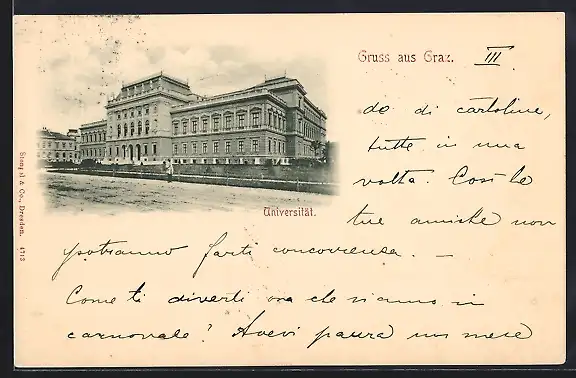 Gruss aus Graz.
III
do di cartoline,
tutte in una
volta. Così le
tue amiche non
potranno farti concorrenza. —
Come ti diverti ora che siamo in
carnovale? Avevi paura un mese
Universität.
Stengel & Co., Dresden. 4713